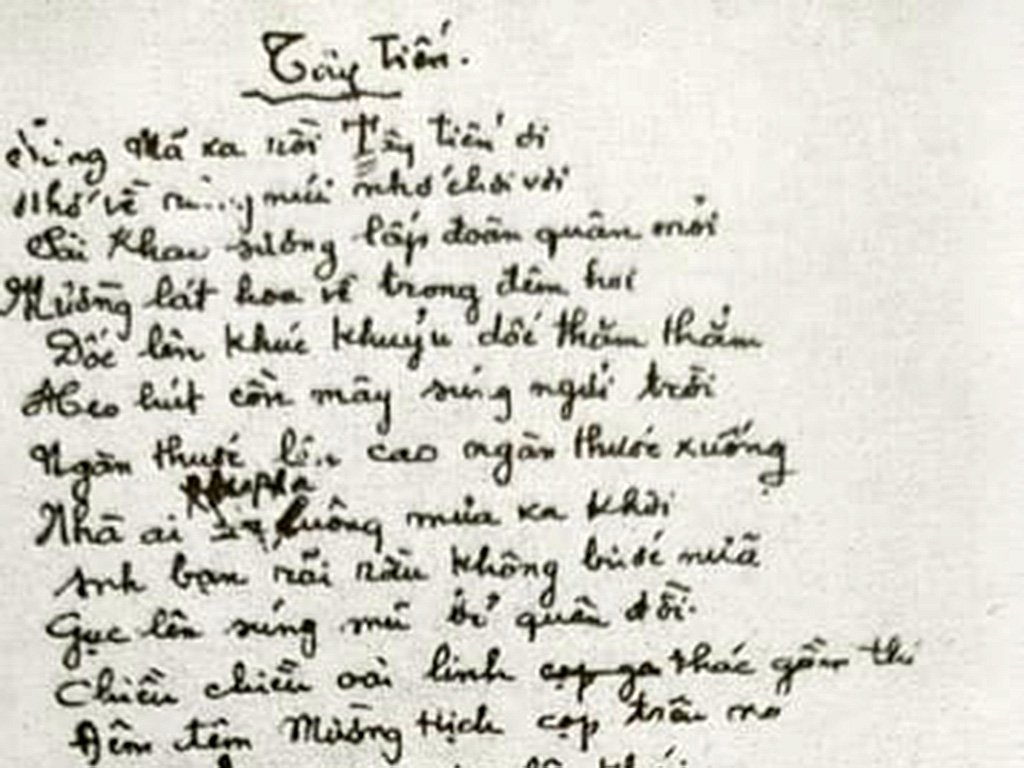 Tây Tiến.
Sông Mã xa rồi Tây tiến ơi
Nhớ về núi nhớ chơi vơi
Sài Khao sương lấp đoàn quân mỏi
Mường lát hoa về trong đêm hơi
Dốc lên khúc khuỷu dốc thăm thẳm
Heo hút cồn mây súng ngửi trời
Ngàn thước lên cao ngàn thước xuống
Nhà ai luông mưa xa khơi
Anh bạn rãi rầu không bước nữa
Gục lên súng mũ bỏ quên đời.
Chiều chiều oai linh cọp gầ thác gầm thé
Đêm đêm Mường Hịch cọp trêu